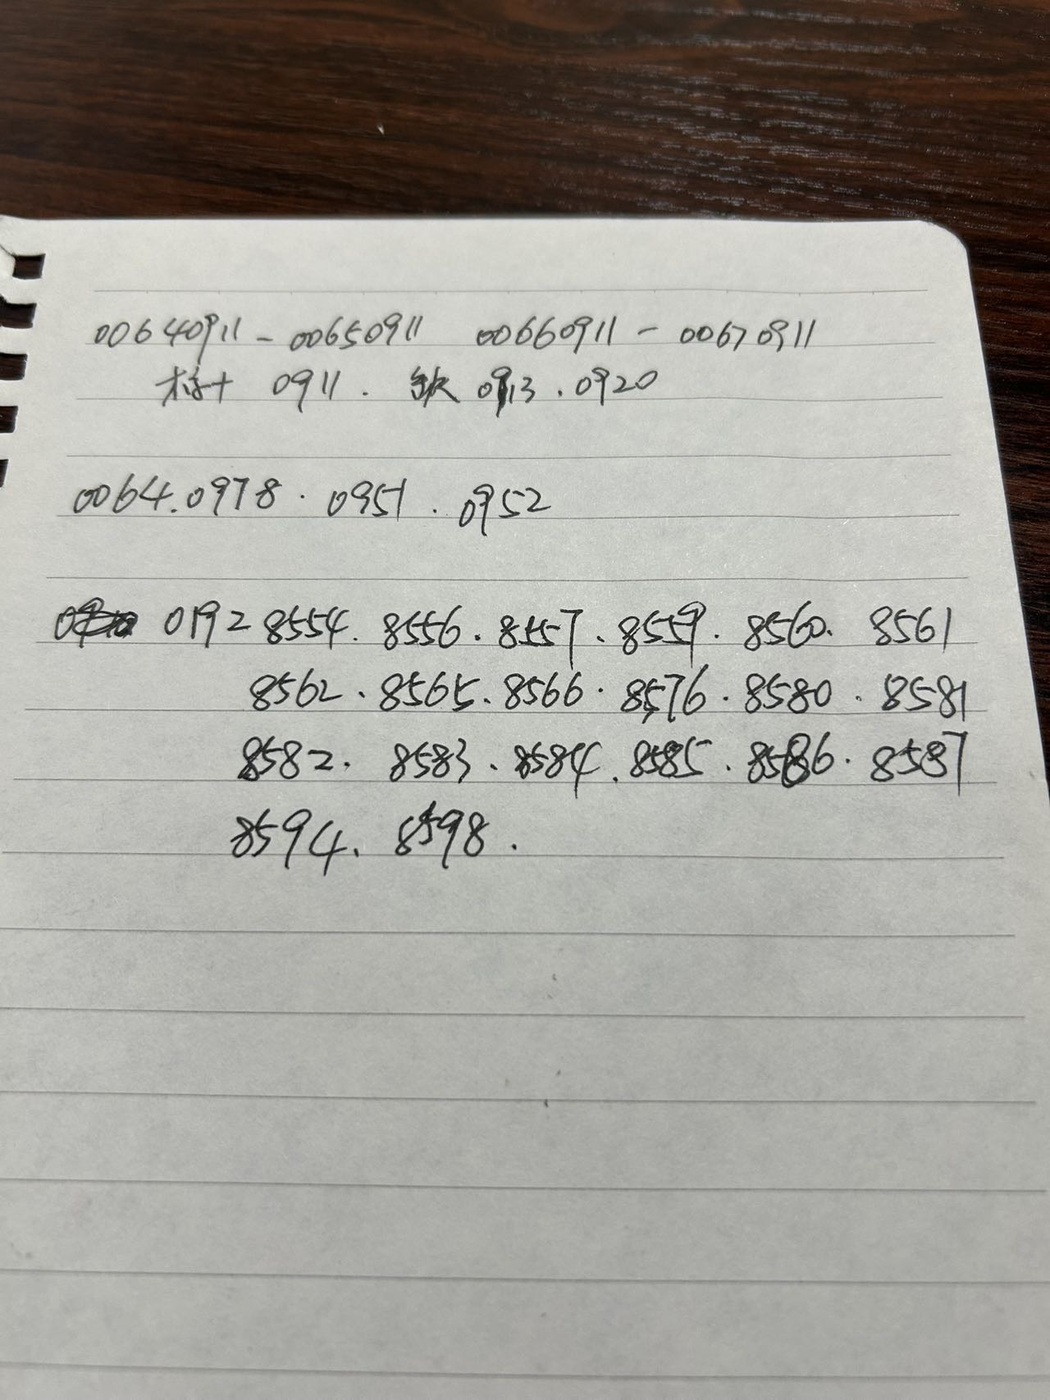 00640911 - 00650911 00660911 - 00670911
0911. 缺 0913. 0920
0064.0978 . 0951 . 0952
0192 8554. 8556. 8557. 8559. 8560. 8561
8562. 8565. 8566. 8576. 8580. 8581
8582. 8583. 8584. 8585. 8586. 8587
8594. 8598.